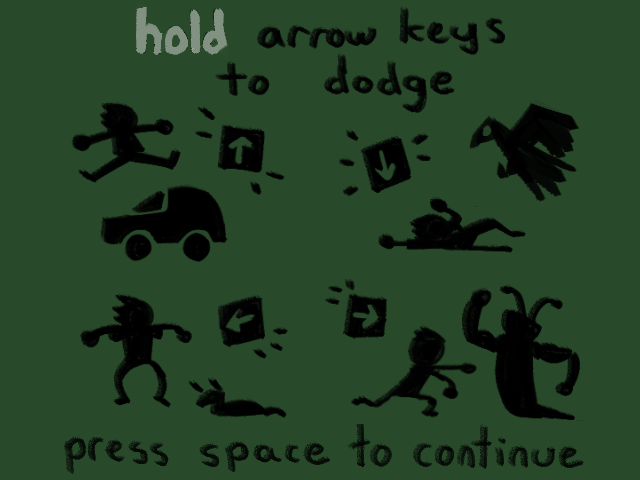 hold arrow keys
to dodge
press space to continue